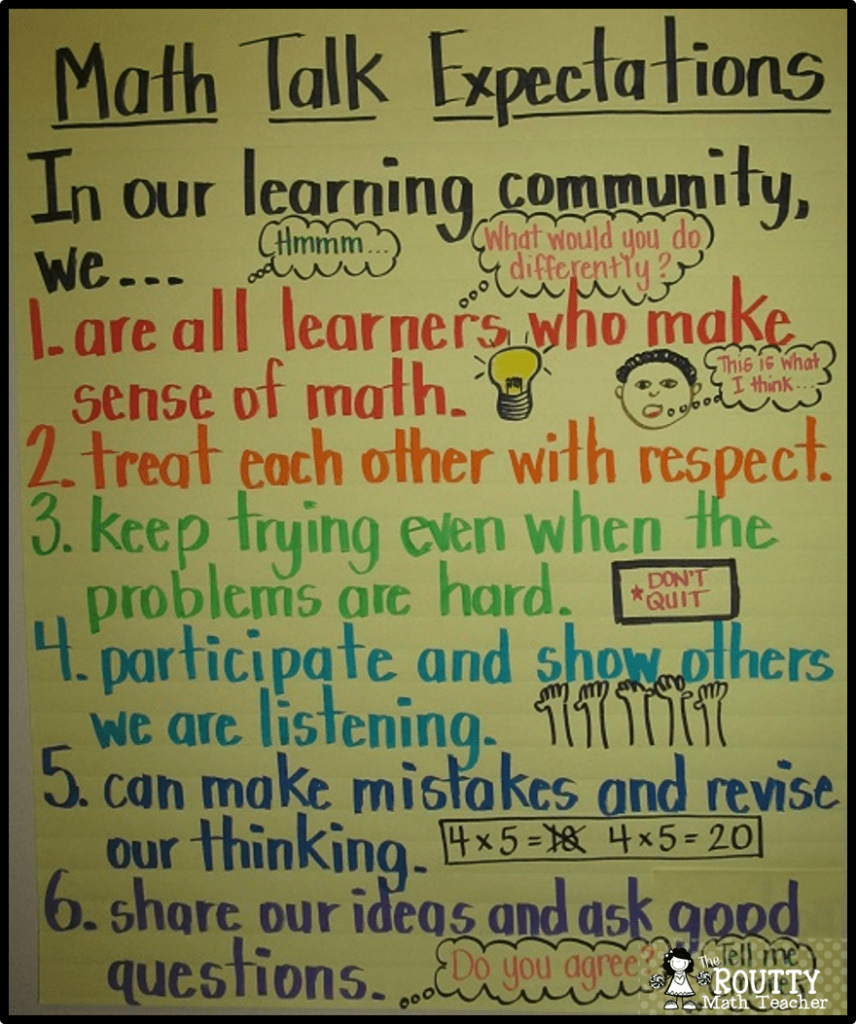 Math Talk Expectations
In our learning community,
we...
Hmmm...
What would you do
differently?
1. are all learners who make
sense of math.
This is what
I think...
2. treat each other with respect.
3. keep trying even when the
problems are hard.
*DON'T
QUIT
4. participate and show others
we are listening.
5. can make mistakes and revise
our thinking.
4x5=18 4x5=20
6. share our ideas and ask good
questions.
Do you agree?
Tell me
The
ROUTTY
Math Teacher